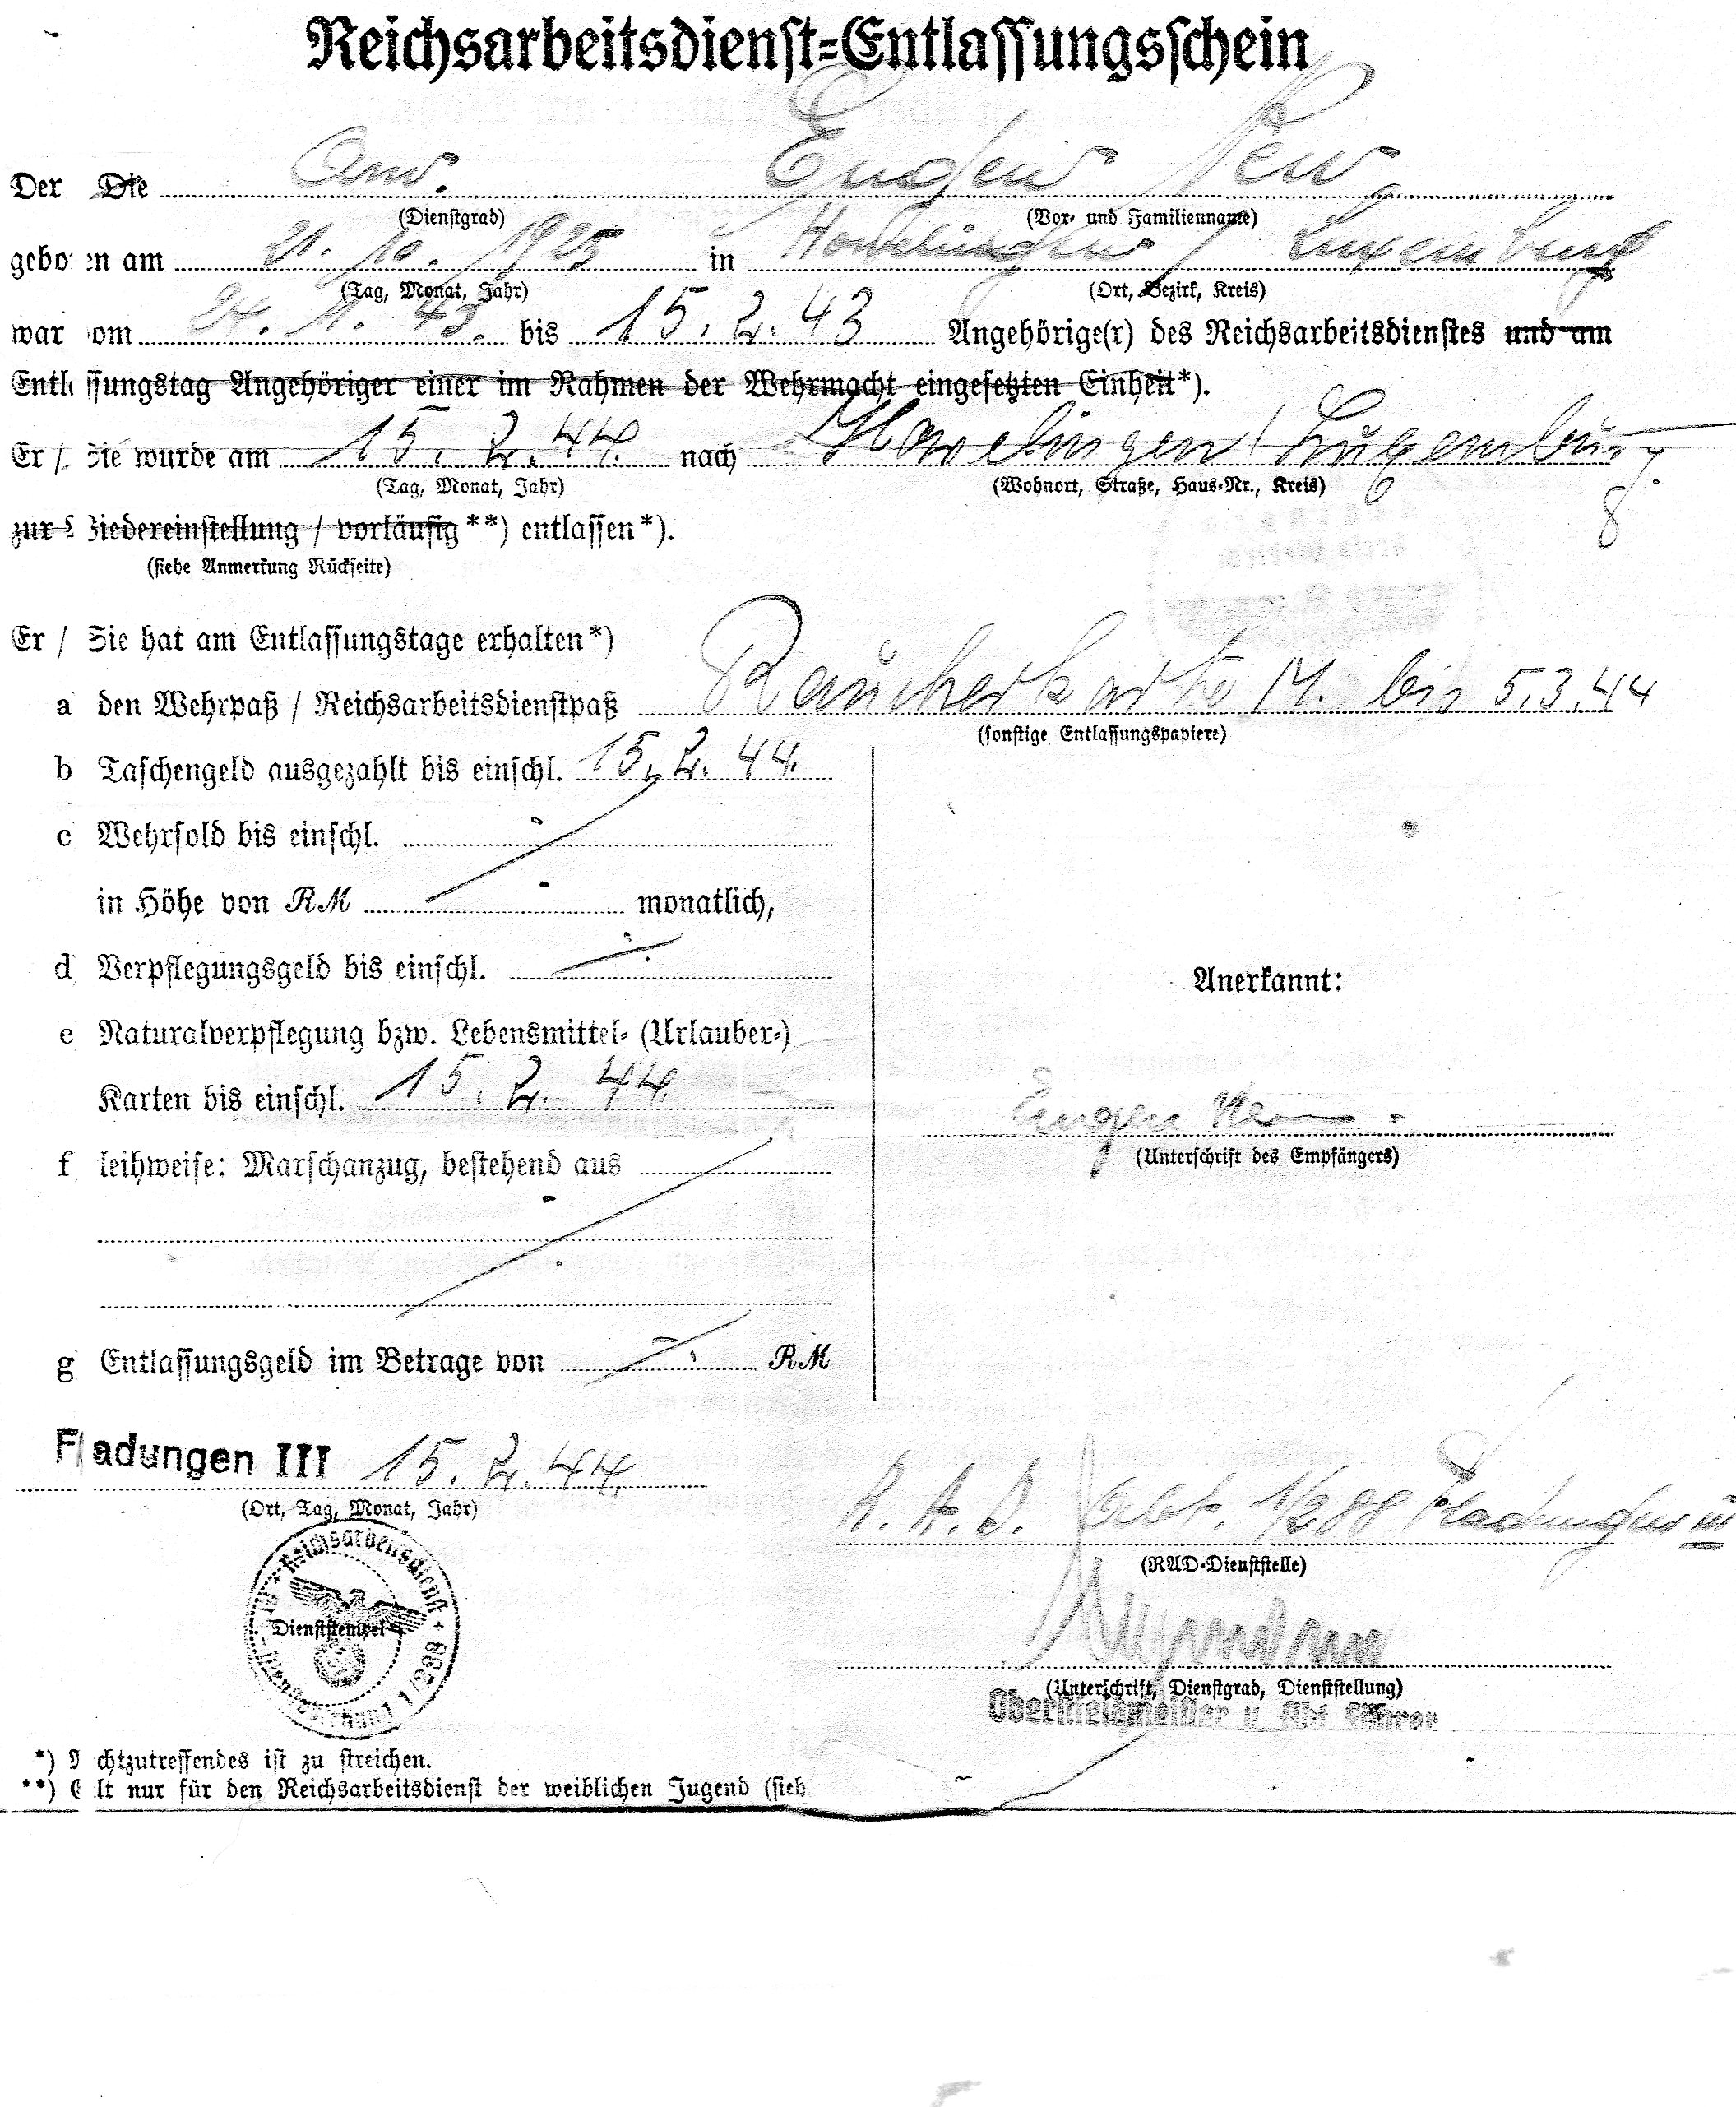 Reichsarbeitsdienst-Entlassungsschein
Der Die Arm. Eugen
(Dienstgrad) (Vor- und Familienname)
gebo en am 21. 10. 1925 in Havelingen / Luxemburg
(Tag, Monat, Jahr) (Ort, Bezirk, Kreis)
war om 24. 11. 43. bis 15. 2. 43 Angehörige(r) des Reichsarbeitsdienstes und am
Entl ssungstag Angehöriger einer im Rahmen der Wehrmacht eingesetzten Einheit*).
Er / Sie wurde am 15. 2. 44. nach Havelingen / Luxemburg
(Tag, Monat, Jahr) (Wohnort, Straße, Haus-Nr., Kreis)
8
zur Wiedereinstellung / vorläufig **) entlassen*).
(siehe Anmerkung Rückseite)
Er / Sie hat am Entlassungstage erhalten*)
a den Wehrpaß / Reichsarbeitsdienstpaß Raucherkarte M. bis 5.3.44
(sonstige Entlassungspapiere)
b Taschengeld ausgezahlt bis einschl. 15. 2. 44.
c Wehrsold bis einschl.
in Höhe von RM monatlich,
d Verpflegungsgeld bis einschl.
Anerkannt:
e Naturalverpflegung bzw. Lebensmittel- (Urlauber-)
Karten bis einschl. 15. 2. 44.
Eugen
(Unterschrift des Empfängers)
f leihweise: Marschanzug, bestehend aus
g Entlassungsgeld im Betrage von RM
Fladungen III 15. 2. 44.
(Ort, Tag, Monat, Jahr)
R. A. D. Abt. 1/288 Fladungen III
(RAD-Dienststelle)
Reichsarbeitsdienst
Dienststempel
1/288
(Unterschrift, Dienstgrad, Dienststellung)
Oberstfeldmeister u. Abt. Führer
*) N chtzutreffendes ist zu streichen.
**) G lt nur für den Reichsarbeitsdienst der weiblichen Jugend (sieh